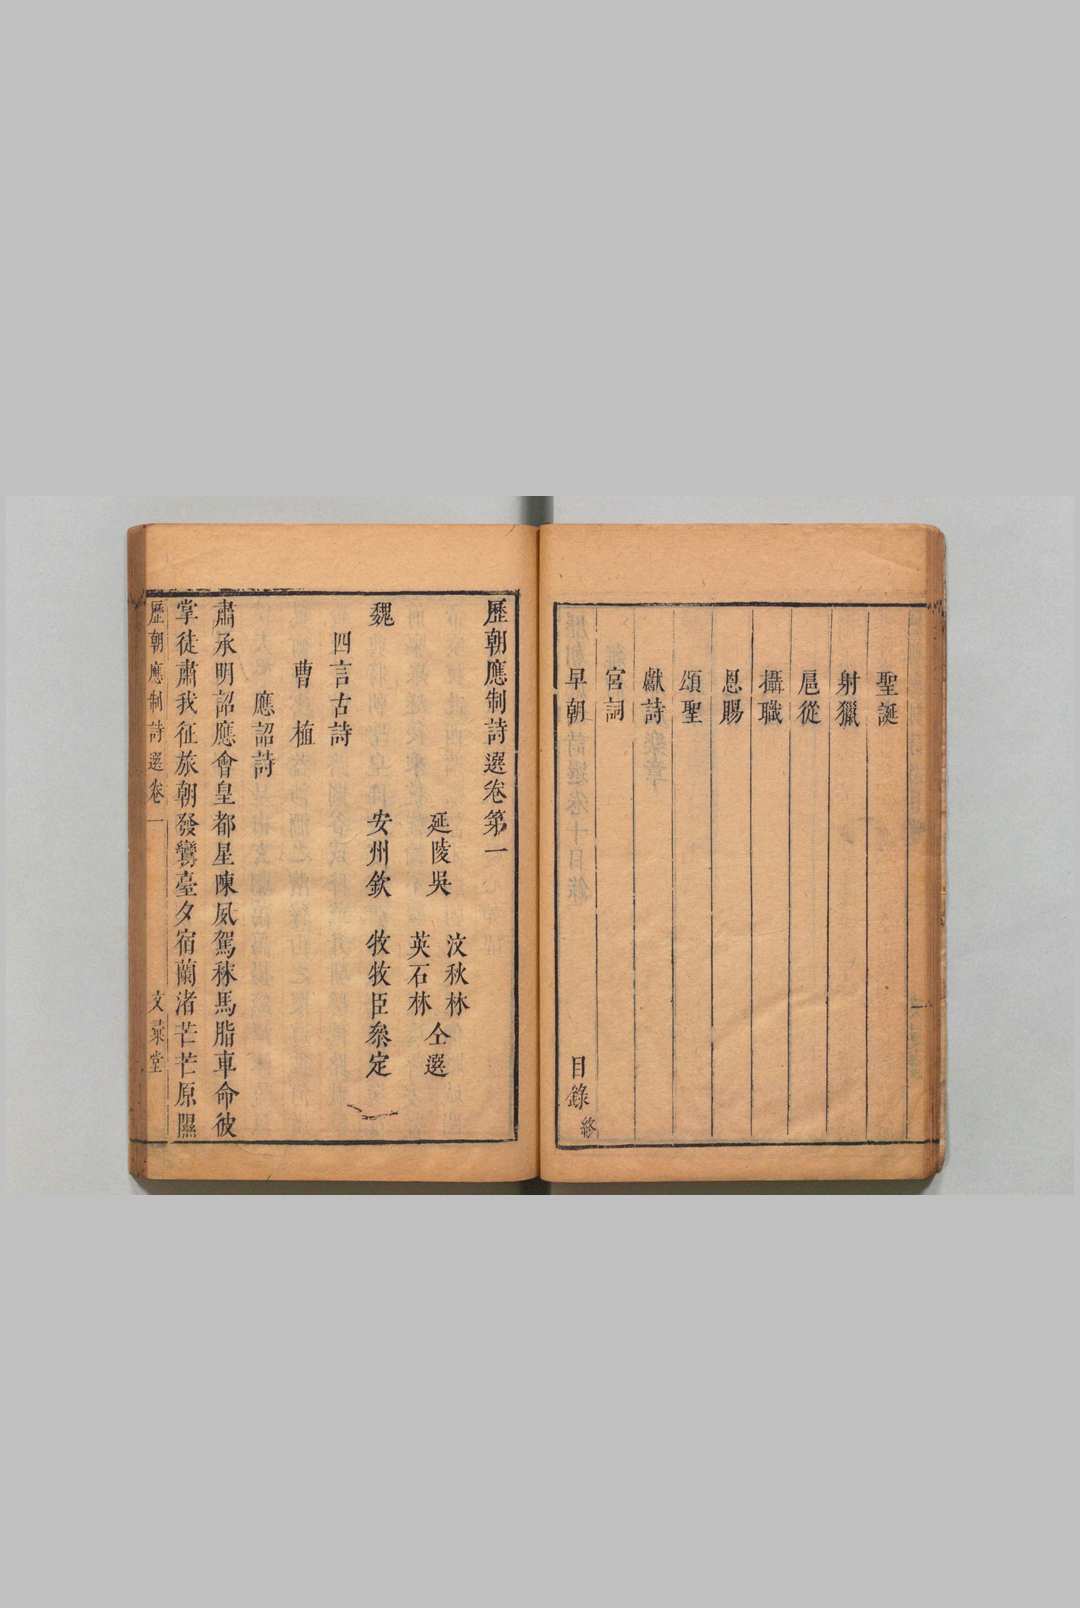 聖誕
射獵
扈從
攝職
恩賜
頌聖
獻詩
宮詞
早朝
目錄終
歷朝應制詩選卷第一
延陵吳
汶秋林
英石林
仝選
安州欽
牧牧臣叅定
魏
四言古詩
曹植
應詔詩
肅承明詔應會皇都星陳夙駕秣馬脂車命彼
掌徒肅我征旅朝發鸞臺夕宿蘭渚芒芒原隰
歷朝應制詩選
卷一
文彙堂